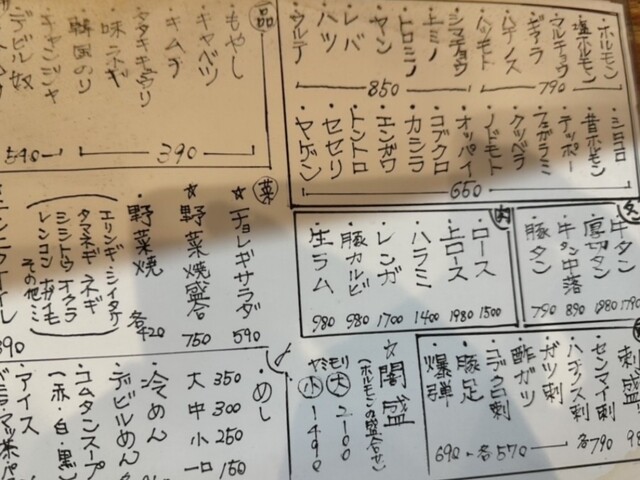 ・ホルモン
・塩ホルモン
・マルチョウ
・ギアラ
・ハチノス
・ハツモト
790
・シマチョウ
・上ミノ
・トロミノ
・ヤン
・レバ
・ハツ
・ウルテ
850
・シロコロ
・昔ホルモン
・テッポー
・フエガラミ
・クツベラ
・ノドモト
・オッパイ
・コブクロ
・カシラ
・エンガワ
・トントロ
・セセリ
・ヤゲン
650
品
・もやし
・キャベツ
・キムチ
・タタキキウリ
・味ネギ
・韓国のり
390
・キャンジャ
・デビル奴
590
菜
☆チョレギサラダ 590
☆野菜焼盛合 750
・野菜焼 各420
(エリンギ・シイタケ
タマネギ ネギ
シシトウ オクラ
レンコン ナガイモ
その他ミ)
390
肉
・ロース 1500
・上ロース 1980
・ハラミ 1400
・レンガ 1700
・豚カルビ 980
・生ラム 980
・牛タン 1790
・厚切タン 1980
・牛タン中落 890
・豚タン 790
・刺盛
・センマイ刺
・ハチノス刺
・ガツ刺
各790
・酢ガツ
・コブクロ刺
・豚足
各570
・爆弾
690
☆闇盛
(ホルモンの盛合せ)
ヤミモリ
大 2100
小 1490
・めし
大 350
中 300
小 250
一口 150
・冷めん
・デビルめん
・コムタンスープ
(赤・白・黒)
・アイス